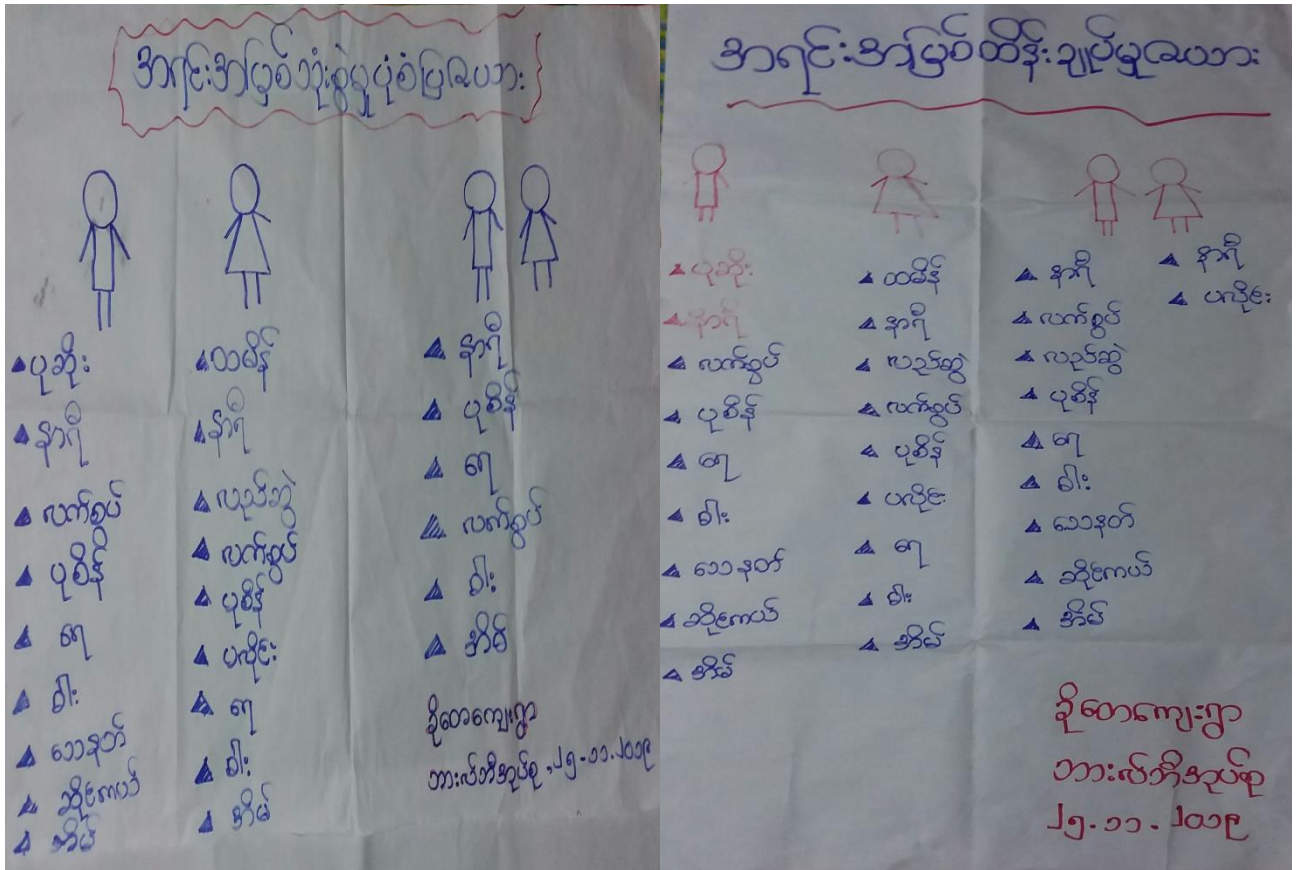 အရင်းအမြစ်သုံးစွဲမှုပုံစံပြဇယား
ပုဆိုး
နာရီ
လက်စွပ်
ပုစိန်
ရေ
ဓါး
သေနတ်
ဆိုင်ကယ်
အိမ်
ထမိန်
နာရီ
လည်ဆွဲ
လက်စွပ်
ပုစိန်
ပလိုင်း
ရေ
ဓါး
အိမ်
နာရီ
ပုစိန်
ရေ
လက်စွပ်
ဓါး
အိမ်
ခိုတေကျေးရွာ
ဘားလ်ဘီအုပ်စု ၊ ၂၅-၁၁-၂၀၁၉
အရင်းအမြစ်ထိန်းချုပ်မှုဇယား
ပုဆိုး
နာရီ
လက်စွပ်
ပုစိန်
ရေ
ဓါး
သေနတ်
ဆိုင်ကယ်
အိမ်
ထမိန်
နာရီ
လည်ဆွဲ
လက်စွပ်
ပုစိန်
ပလိုင်း
ရေ
ဓါး
အိမ်
နာရီ
လက်စွပ်
လည်ဆွဲ
ပုစိန်
ရေ
ဓါး
သေနတ်
ဆိုင်ကယ်
အိမ်
နာရီ
ပလိုင်း
ခိုတေကျေးရွာ
ဘားလ်ဘီအုပ်စု
၂၅-၁၁-၂၀၁၉